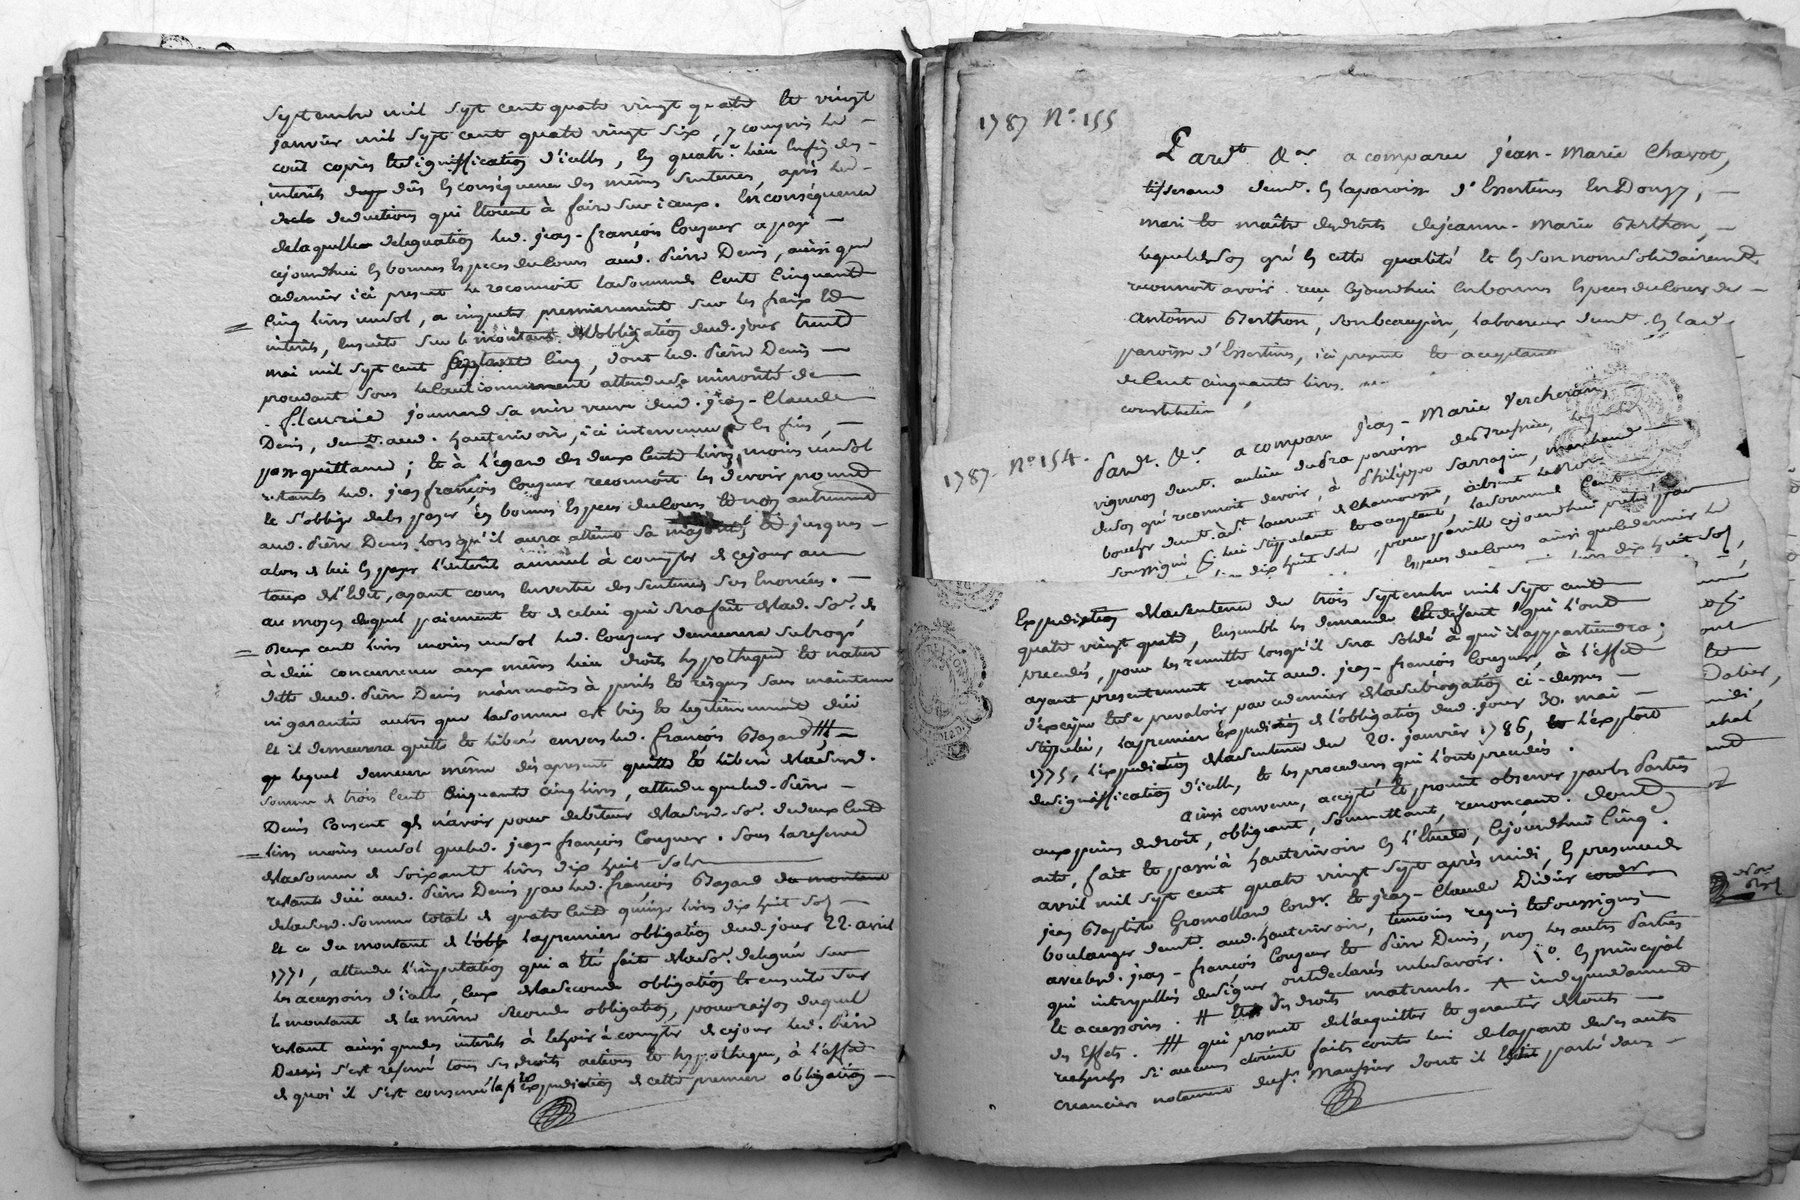 septembre mil sept cent quatre vingt quatre et vingt
janvier mil sept cent quatre vingt six, y compris le
cout copies et signiffication d'icelles, en quatr.e lieu enfin des
interêts dus en conséquence des mêmes sentences, après les
deductions qui etoient à faire sur iceux. En conséquence
de laquelle delegation led. jean-françois Couzeur a payé
cejourdhui en bonnes especes du Cours aud. Pierre Denis, ainsi que
ce dernier ici present le reconnoit la somme de Cent Cinquante
Cinq livres un sol, a imputer premierement sur les fraix et
interêts, ensuite sur le montant de l'obligation dud. jour trente
mai mil sept cent septante Cinq, dont led. Pierre Denis
procedant sous le Cautionnement attendu sa minorité de
fleurie journand sa mère veuve dud. jean-Claude
Denis, demt. aud. hauterivoire, ici intervenue à les fins,
passe quittance; et à l'égard des deux Cents livres moins un sol
restants led. jean françois Couzeur reconnoit les devoir pour
et s'oblige de les payer en bonnes especes du Cours et non autrement
aud. Pierre Denis lorsqu'il aura atteint sa majorité et jusques
alors de lui en payer l'interêt annuel à compter de ce jour au
taux de l'Edit, ayant cours en vertu des sentences sus enoncées.
au moyen duquel paiement et de celui qui sera fait de lad. so.e de
deux cent livres moins un sol led. Couzeur demeurera subrogé
à düe concurrence aux mêmes lieu droits hypotheque et nature
dette dud. Pierre Denis néanmoins à perils et risques sans maintenue
ni garantie autres que la somme est bien et legitimement düe
et il demeurera quitte et liberé envers led. françois Bazard #
lequel demeure même dès apresent quitte et liberé de la susd.
somme de trois Cent Cinquante Cinq livres, attendu que led. Pierre
Denis Consent de n'avoir pour debiteur de la susd. so.e de deux Cent
livres moins un sol que led. jean-françois Couzeur. Sous la reserve
de la somme de soixante livres dix huit sols
restante düe aud. Pierre Denis par led. françois Bazard du montant
de la susd. somme total de quatre Cent quinze livres dix huit sols
et ce du montant de la premiere obligation dud. jour 22. avril
1771, attendu l'imputation qui a été faite de la so.e deleguée sur
les accessoirs d'icelle, ceux de la seconde obligation et ensuite sur
le montant de la même seconde obligation, pour raison duquel
restant ainsi que des interêts à echoir à compter de ce jour led. Pierre
Denis s'est reservé tous ses droits actions et hypotheque, à l'effet
de quoi il s'est conservé la p.re expedition de cette premiere obligation
1787 N.o 155
Pardt. &.a a comparu jean-Marie Chavot,
tisserand demt. en la paroisse d'Essertines en Donzy,
mari et maître des droits de jeanne-Marie Berthon,
lequel de son gré en cette qualité et en son nom solidairement
reconnoit avoir reçu cejourdhui en bonnes especes du Cours de
antoine Berthon, son beaupère, laboureur demt. en lad.
paroisse d'Essertines, ici present et acceptant
de Cent cinquante livres
constitution
1787. N.o 154.
Pardt. &.a a comparu jean-Marie Vercherand,
vigneron demt. au lieu du Bra paroisse
de son gré reconnoit devoir, à Philippe Sarrazin, marchand
boucher demt. à St. laurent de Chamousset, absent
soussigné lui stipulant et acceptant, la somme de Cent
dix huit sols, pour pareille cejourdhui
especes du Cours ainsi que ce dernier le
livres dix huit sols,
Expedition de la sentence du trois septembre mil sept cent
quatre vingt quatre, Ensemble les demande et defaut qui l'ont
precedés, pour les remettre lorsqu'il sera soldé à qui il appartiendra;
ayant presentement remit aud. jean-françois Couzeur, à l'effet
d'exciper et se prevaloir par ce dernier de la subrogation ci-dessus
stipulée, la premier expedition de l'obligation dud. jour 30. mai
1775, l'expedition de la sentence du 20. janvier 1786, et l'exploit
de signiffication d'icelle, et les procedures qui l'ont precedés.
ainsi convenu, accepté et promit observer par les Parties
aux peines de droit, obligeant, soumettant, renonçant. dont
acte, fait et passé à hauterivoire en l'Etude, cejourdhui Cinq
avril mil sept cent quatre vingt sept après midi, en presence de
jean Baptiste Gromollard cordr. et jean-Claude Didier
boulanger demt. aud. hauterivoire, temoins requis et soussignés
avec led. jean-françois Couzeur et Pierre Denis, non les autres Parties
qui interpellés de signer ont declarés ne le savoir. en principal
et accessoirs. # et des droits maternels. independament
des Effets. # qui promet de l'acquitter et garantir de toute
recherches si aucunes etoient faits contre lui de la part de ses autres
creanciers notament du s.r Maussier dont il est parlé dans